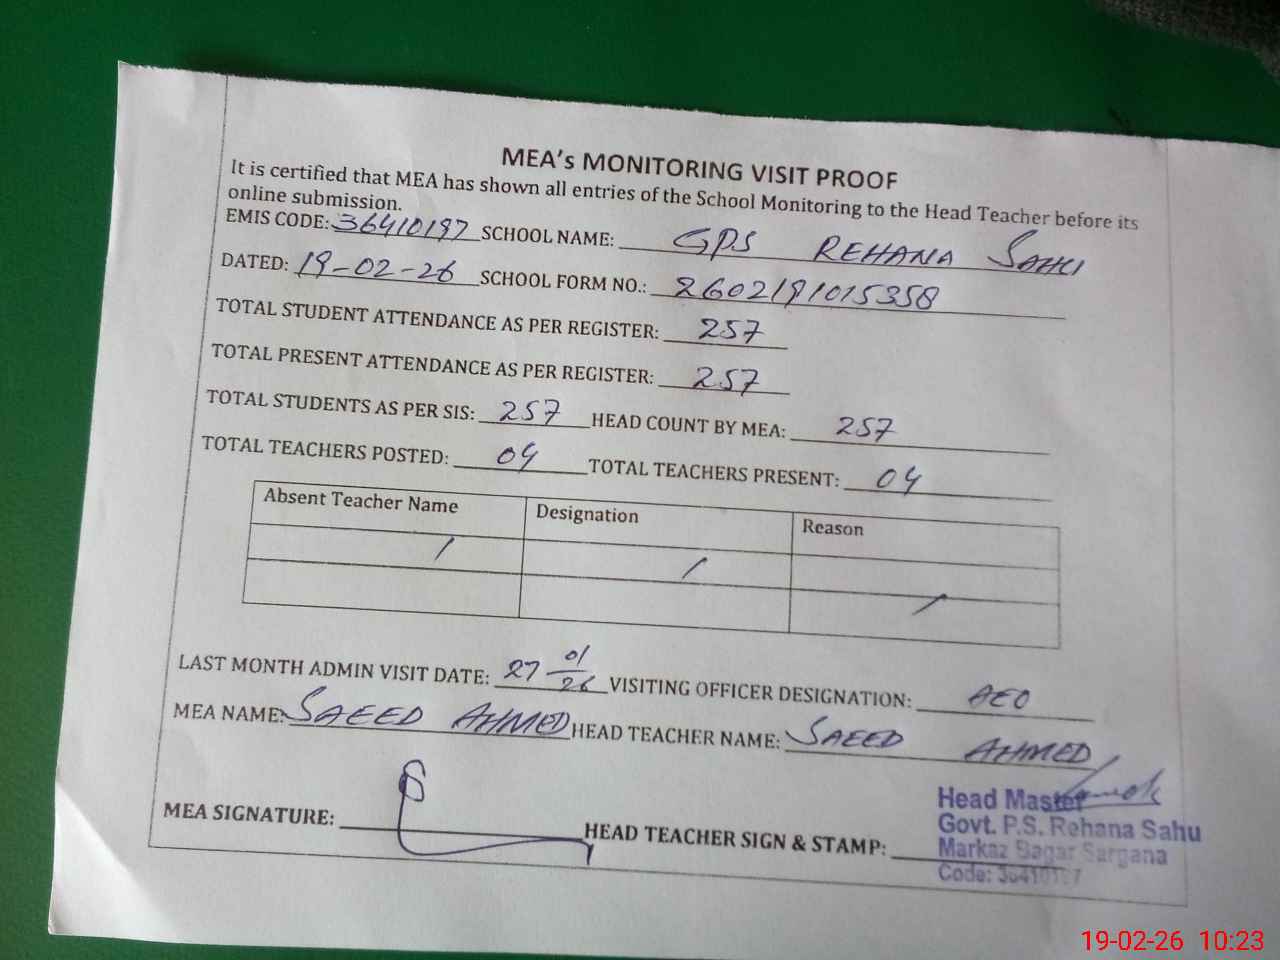 MEA's MONITORING VISIT PROOF
It is certified that MEA has shown all entries of the School Monitoring to the Head Teacher before its
online submission.
EMIS CODE: 36410197 SCHOOL NAME: GPS REHANA SAHU
DATED: 19-02-26 SCHOOL FORM NO.: 2602191015358
TOTAL STUDENT ATTENDANCE AS PER REGISTER: 257
TOTAL PRESENT ATTENDANCE AS PER REGISTER: 257
TOTAL STUDENTS AS PER SIS: 257 HEAD COUNT BY MEA: 257
TOTAL TEACHERS POSTED: 04 TOTAL TEACHERS PRESENT: 04
Absent Teacher Name Designation Reason
/ / /
LAST MONTH ADMIN VISIT DATE: 27 01/26 VISITING OFFICER DESIGNATION: AEO
MEA NAME: SAEED AHMED HEAD TEACHER NAME: SAEED AHMED
MEA SIGNATURE: HEAD TEACHER SIGN & STAMP:
Head Master
Govt. P.S. Rehana Sahu
Markaz Bagar Sargana
Code: 36410197
19-02-26 10:23